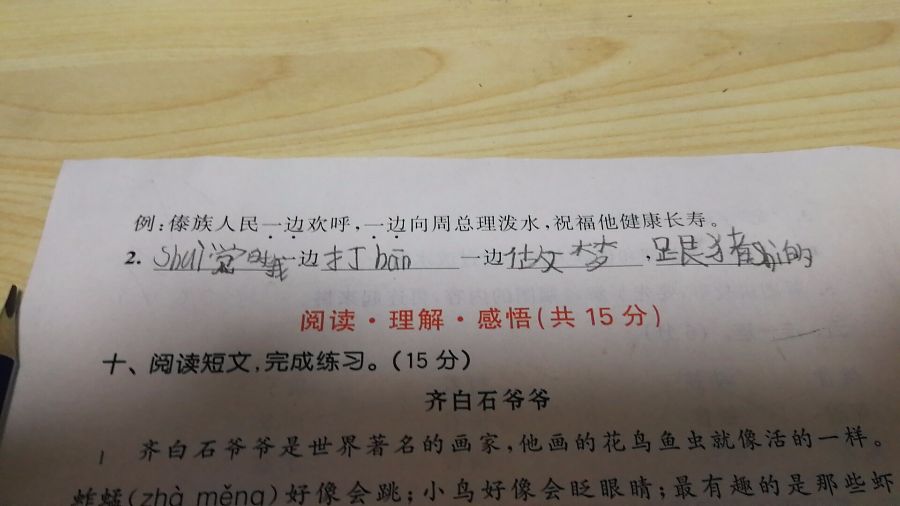 例:傣族人民一边欢呼,一边向周总理泼水,祝福他健康长寿。
2. shuì觉的我一边打hān一边做梦,跟猪的
阅读·理解·感悟(共15分)
十、阅读短文,完成练习。(15分)
齐白石爷爷
1 齐白石爷爷是世界著名的画家,他画的花鸟鱼虫就像活的一样。
蚱蜢(zhà měng)好像会跳;小鸟好像会眨眼睛;最有趣的是那些虾